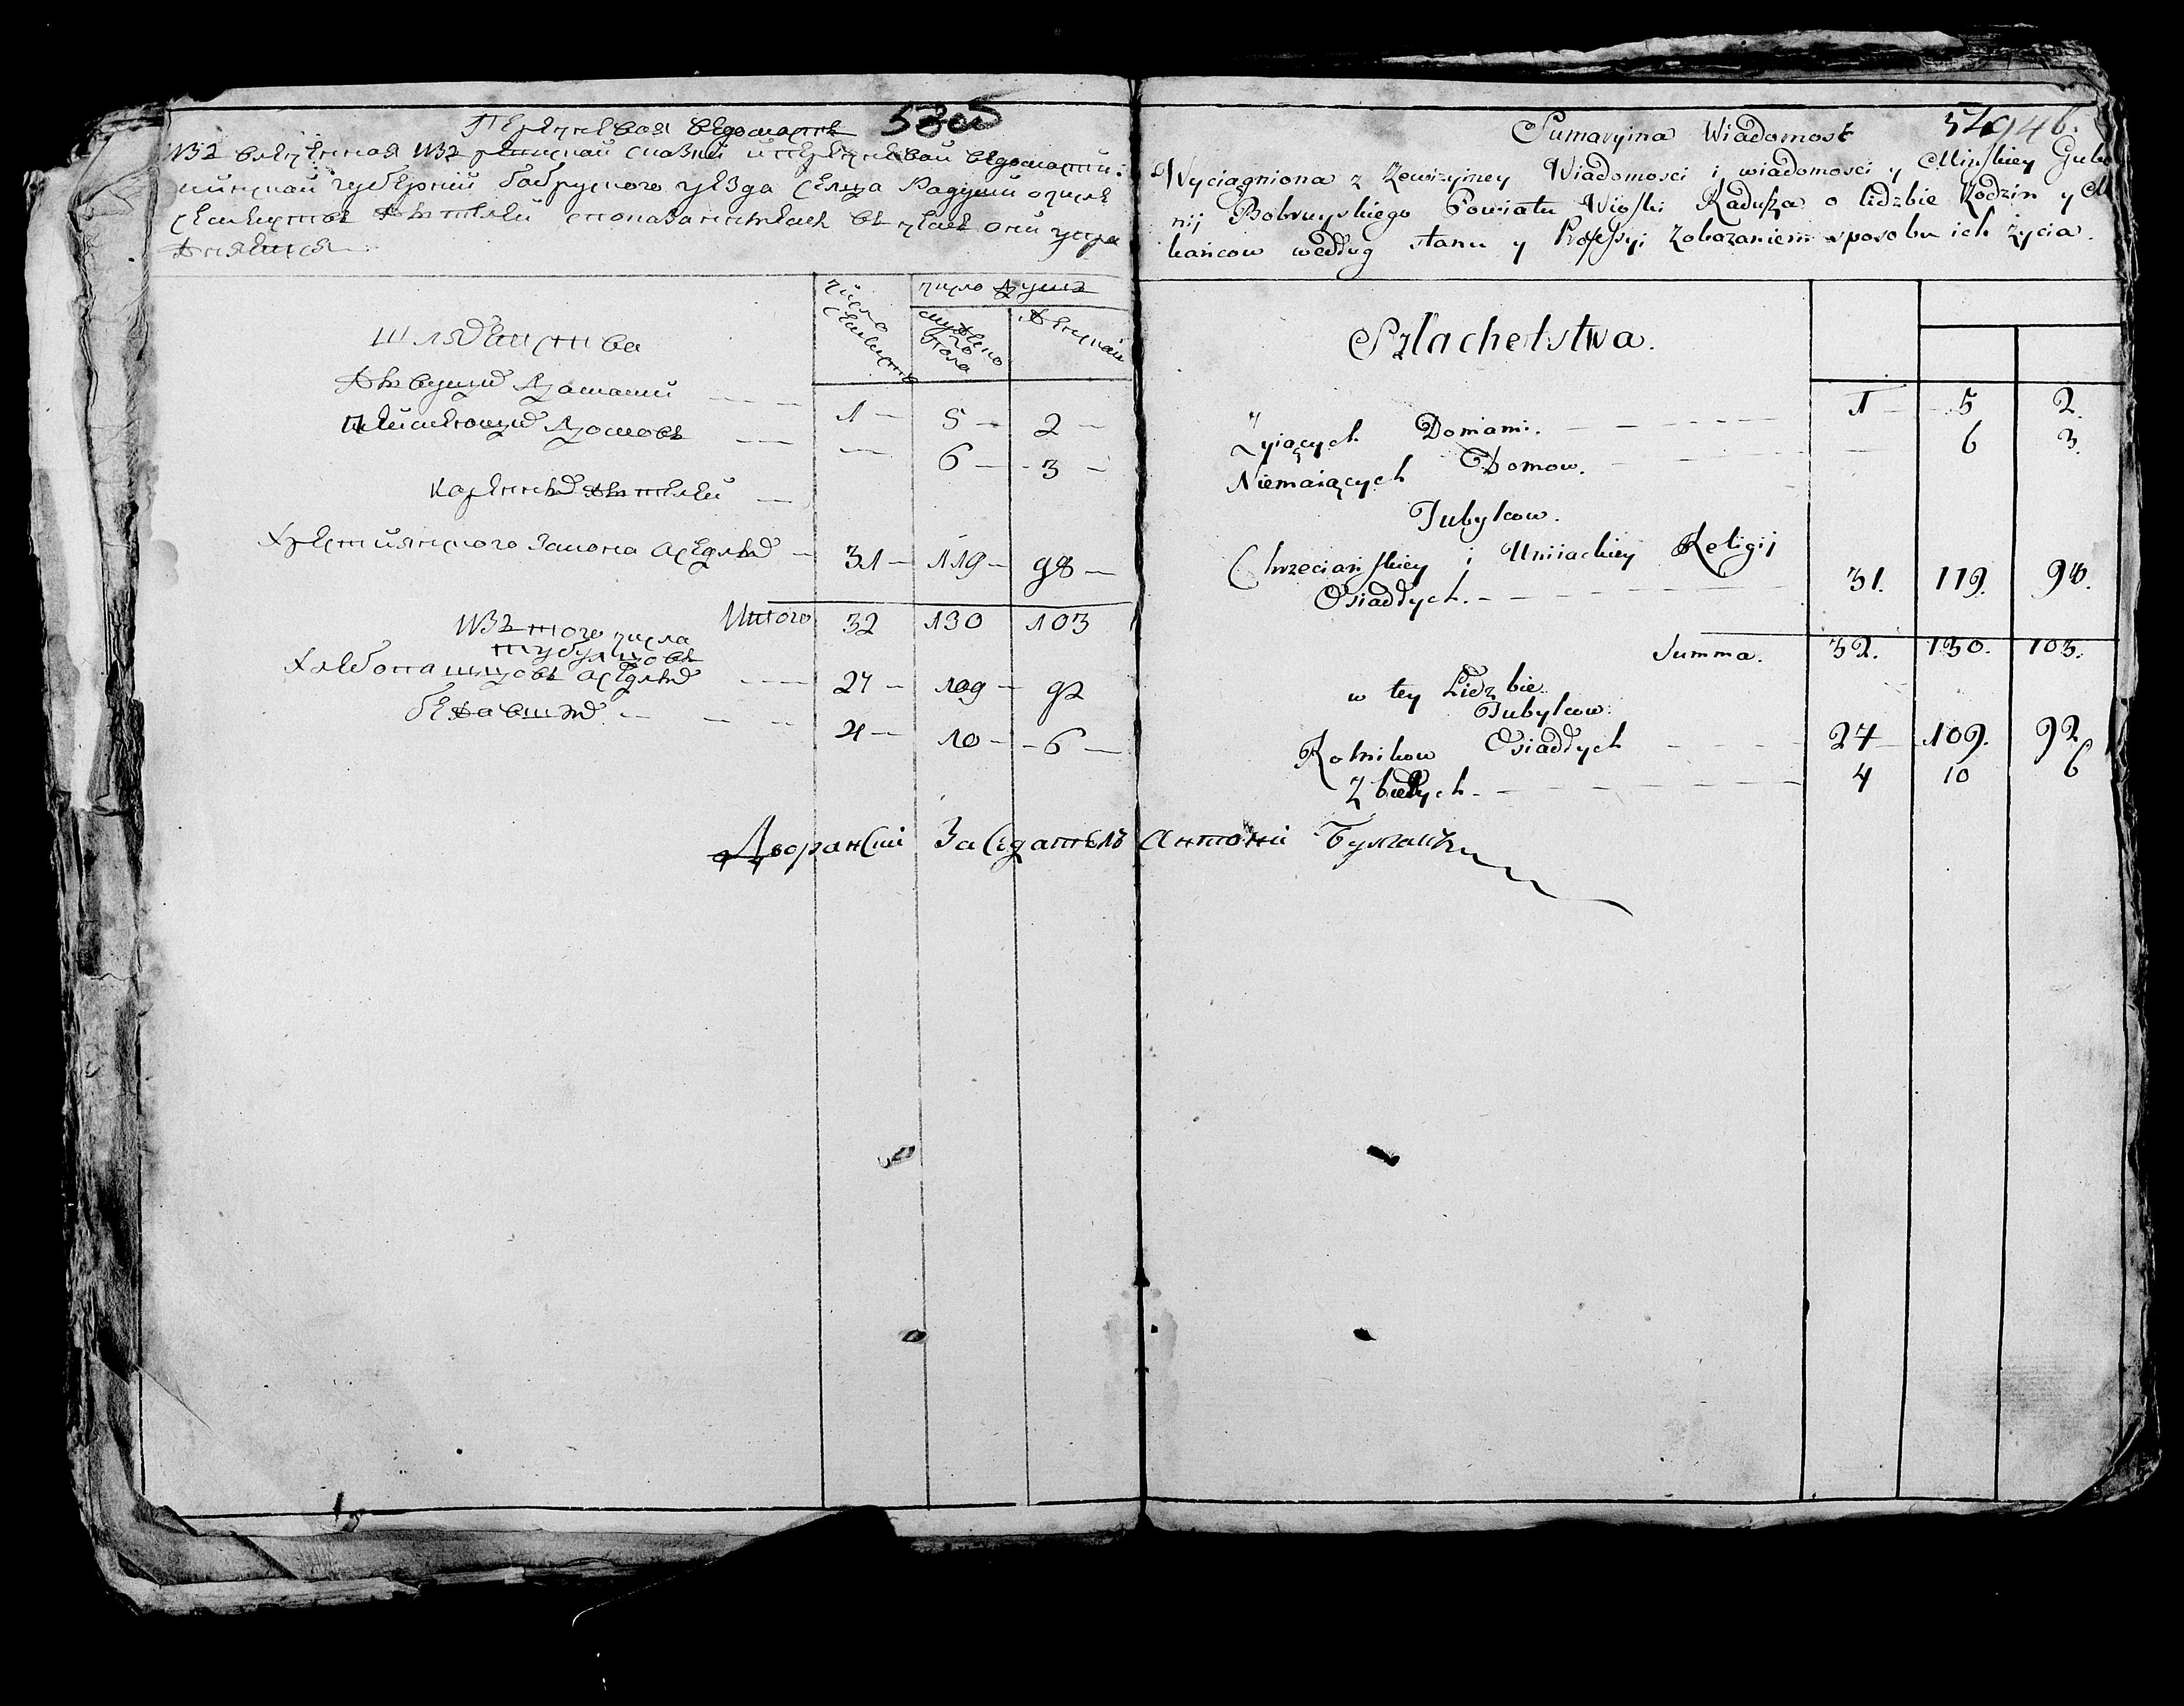 Перечневая ведомость
извлеченная из ревизской сказки и перечневой ведомости
минской губернии бобруского уезда сельца Радуши о числе
семейств жителей с показанием в чем они упра
жняются
число семейств
число душ
мужеского пола
женска
Шляхетства
живущих домами — 1 — 5 — 2 —
неимеющих домов — — 6 — 3 —
коренных жителей —
християнского закона оседлых — 31 — 119 — 98 —
Итого 32 130 103
из того числа
тубулцов
хлебопашцов оседлых — 27 — 109 — 92
бежавших — 4 — 10 — 6 —
Дворянский Заседатель Антоній
Sumaryina Wiadomosć
Wyciągniona z Rewizyiney Wiadomosci i wiadomosci y Minskiey Gube
nij Bobruyskiego Powiatu Wioski Radusza o lidzbie Rodzin y M
kańcow według stanu y Professyi Zokazaniem sposobu ich życia.
Szlachetstwa.
Żyiących Domami. — 1 — 5 2.
Niemaiących Domow. — 6 3.
Tubylcow.
Chrzeciańskiey i Uniiackiey Religij
Osiadłych. — 31. 119. 98.
Summa. 32. 130. 103.
w tey Lidzbie.
Tubylcow.
Rolnikow Osiadłych — 27 109. 92
Zbiegłych — 4 10 6